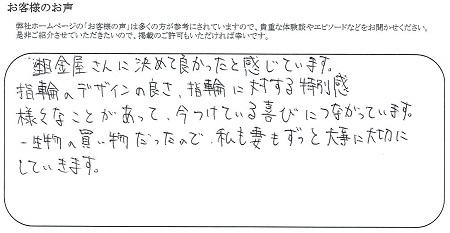 お客様のお声
弊社ホームページの「お客様の声」は多くの方が参考にされていますので、貴重な体験談やエピソードなどをお聞かせください。
是非ご紹介させていただきたいので、掲載のご許可もいただければ幸いです。
鎺金屋さんに決めて良かったと感じています。
指輪のデザインの良さ、指輪に対する特別感
様々なことがあって、今つけている喜びにつながっています。
一生物の買い物だったので、私も妻もずっと大事に大切に
していきます。